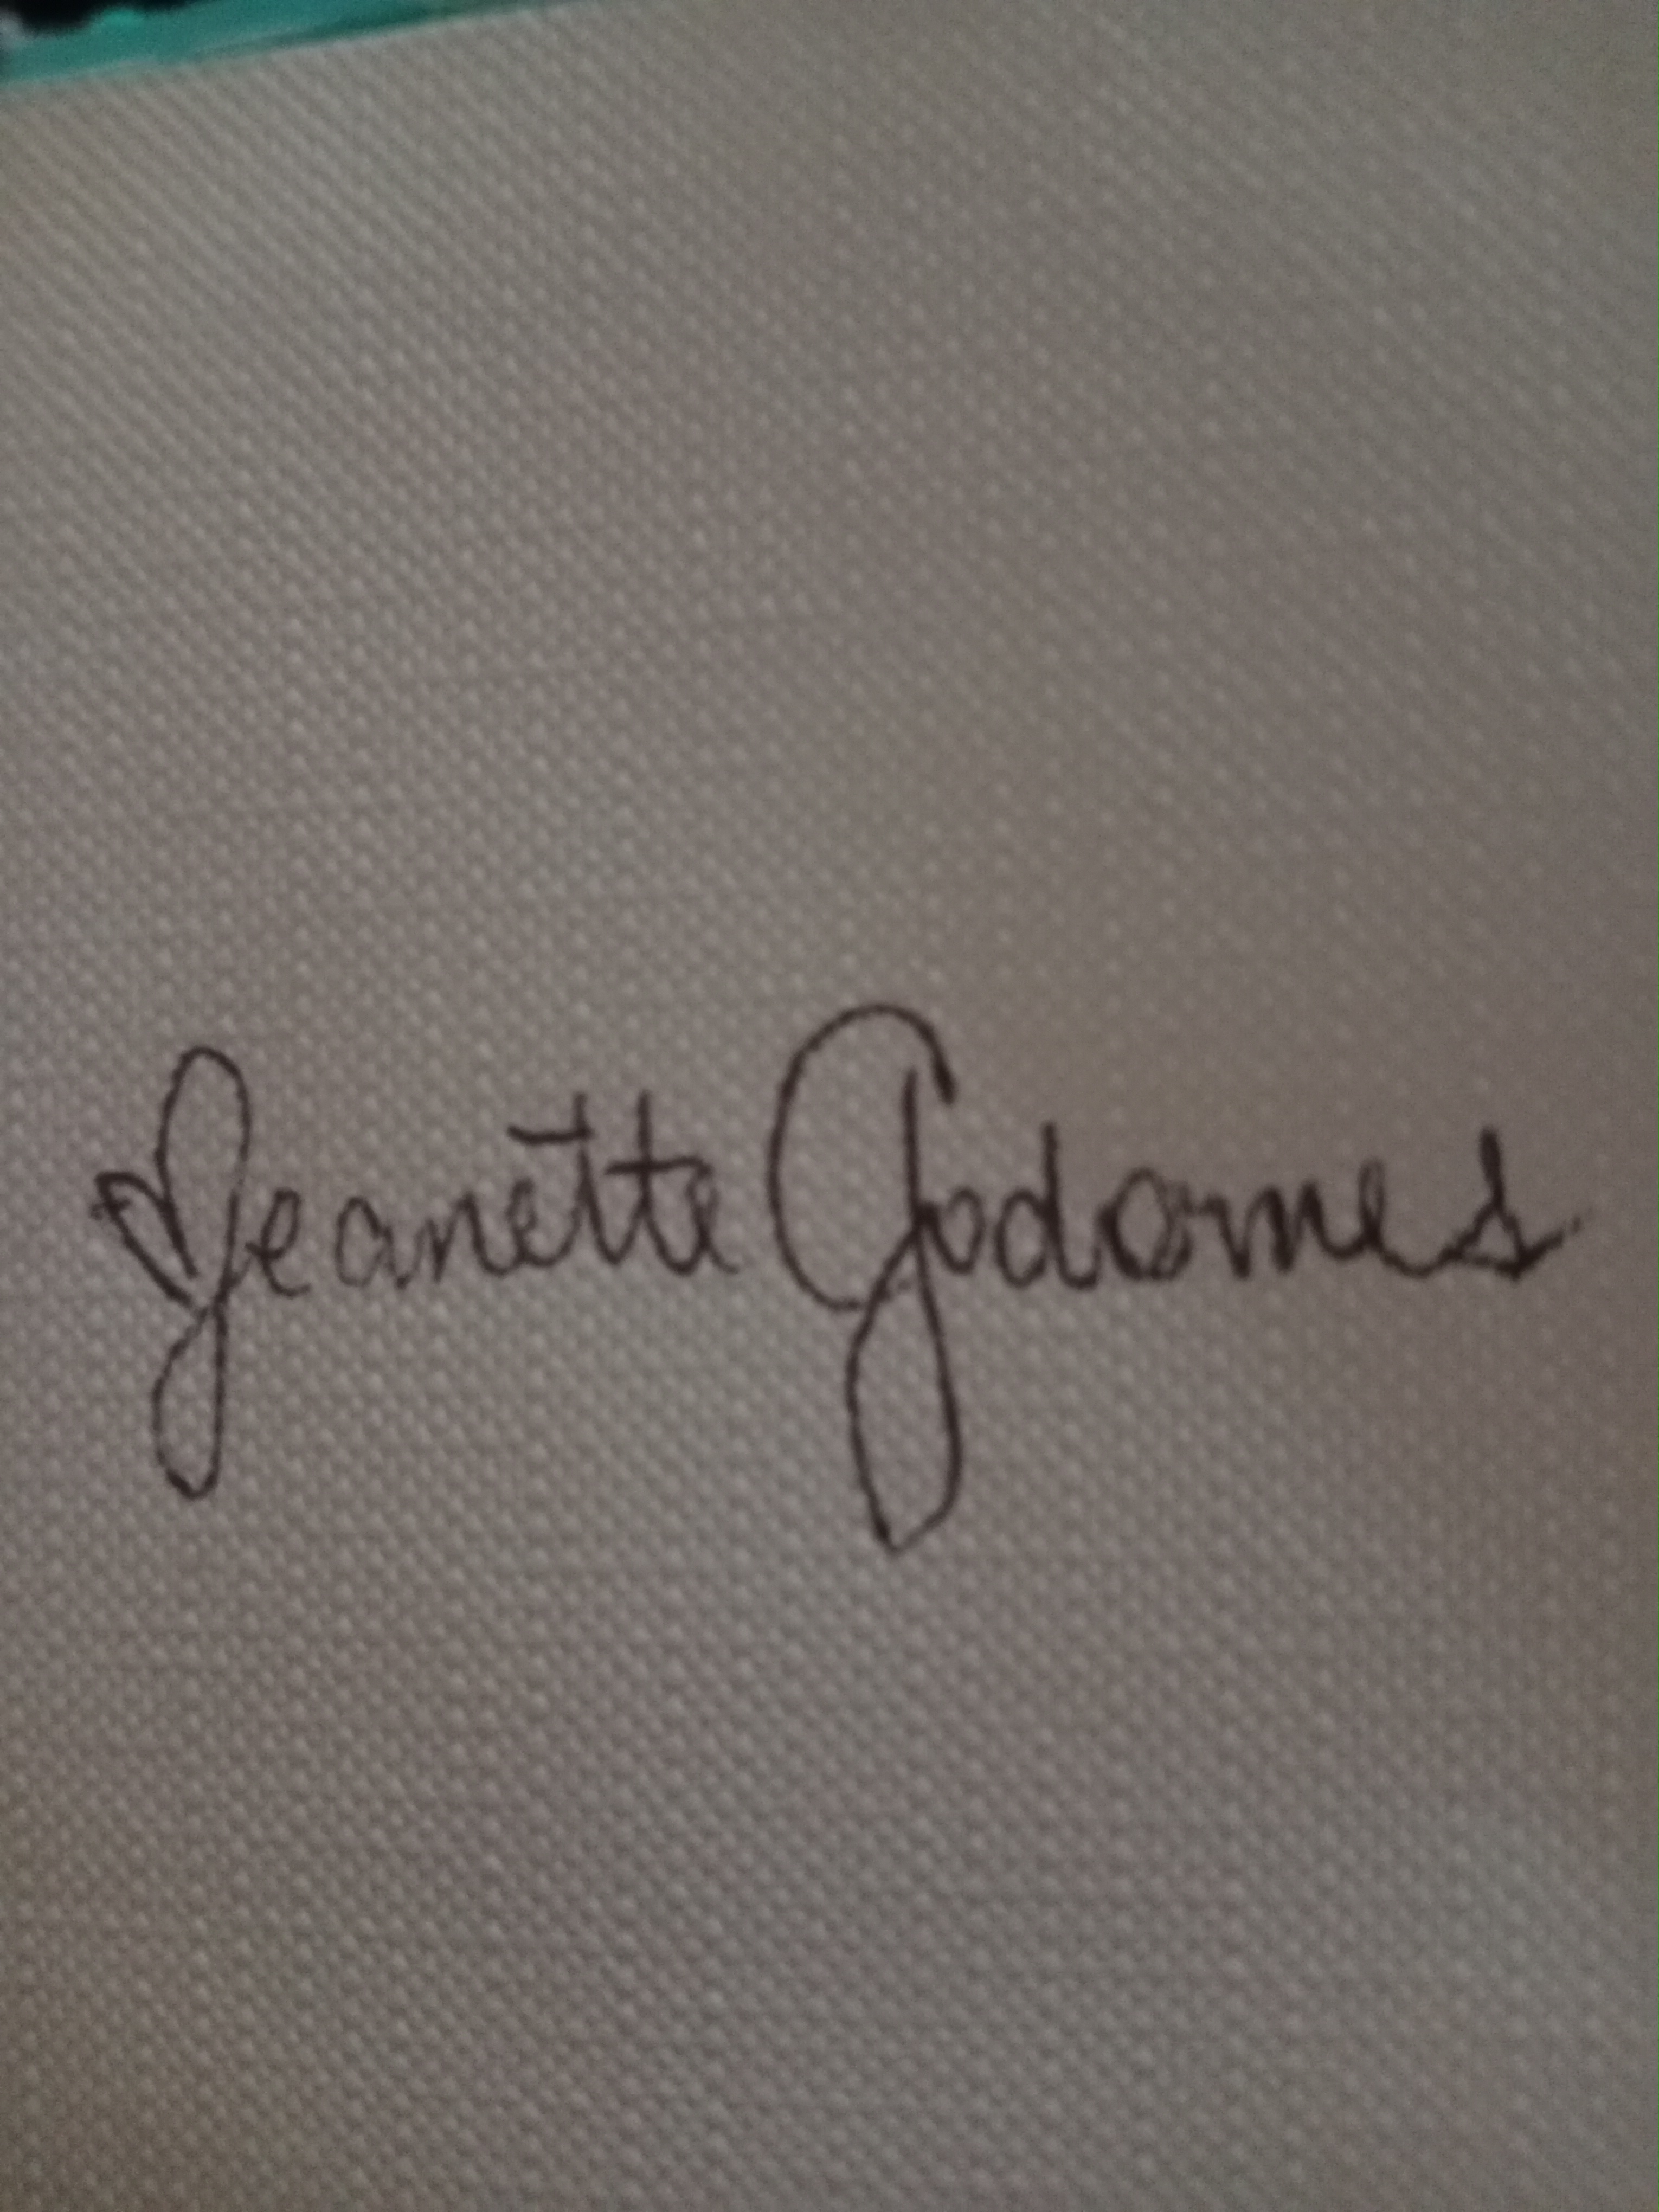 Jeanette Godomes